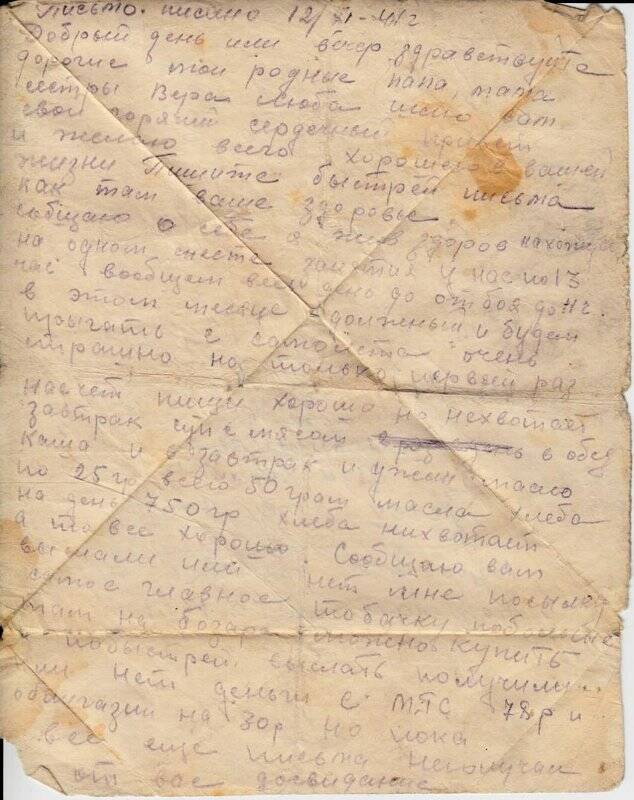 Письмо. писано 12/XI-41г
Добрый день или вечер здравствуйте
дорогие мои родные папа, мама
сестры Вера Люба шлю вам
свой горячий сердечный привет
и желаю всего хорошего в вашей
жизни Пишите быстрей письма
как там ваше здоровье
собщаю о себе я жив здоров нахожусь
на одном месте занятия у нас по 13
час вообщем весь день до отбоя до 11 ч.
в этом месяце должный и будем
прыгать с самолета очень
страшно но только первый раз
насчет пищи хорошо но нехватает
завтрак суп с мясом в обед
каша и взавтрак и ужин масло
по 25 гр всего 50 грам масла хлеба
на день 750 гр хлеба нихватает
а то все хорошо. Сообщаю вам
выслали или нет мне посылку
самое главное тобачку побольше
там на базаре можно купить
и побыстрей выслать получили
или нет деньги с МТС 78р и
облигации на зор но пока
все еще письма неполучал
от вас досвидание